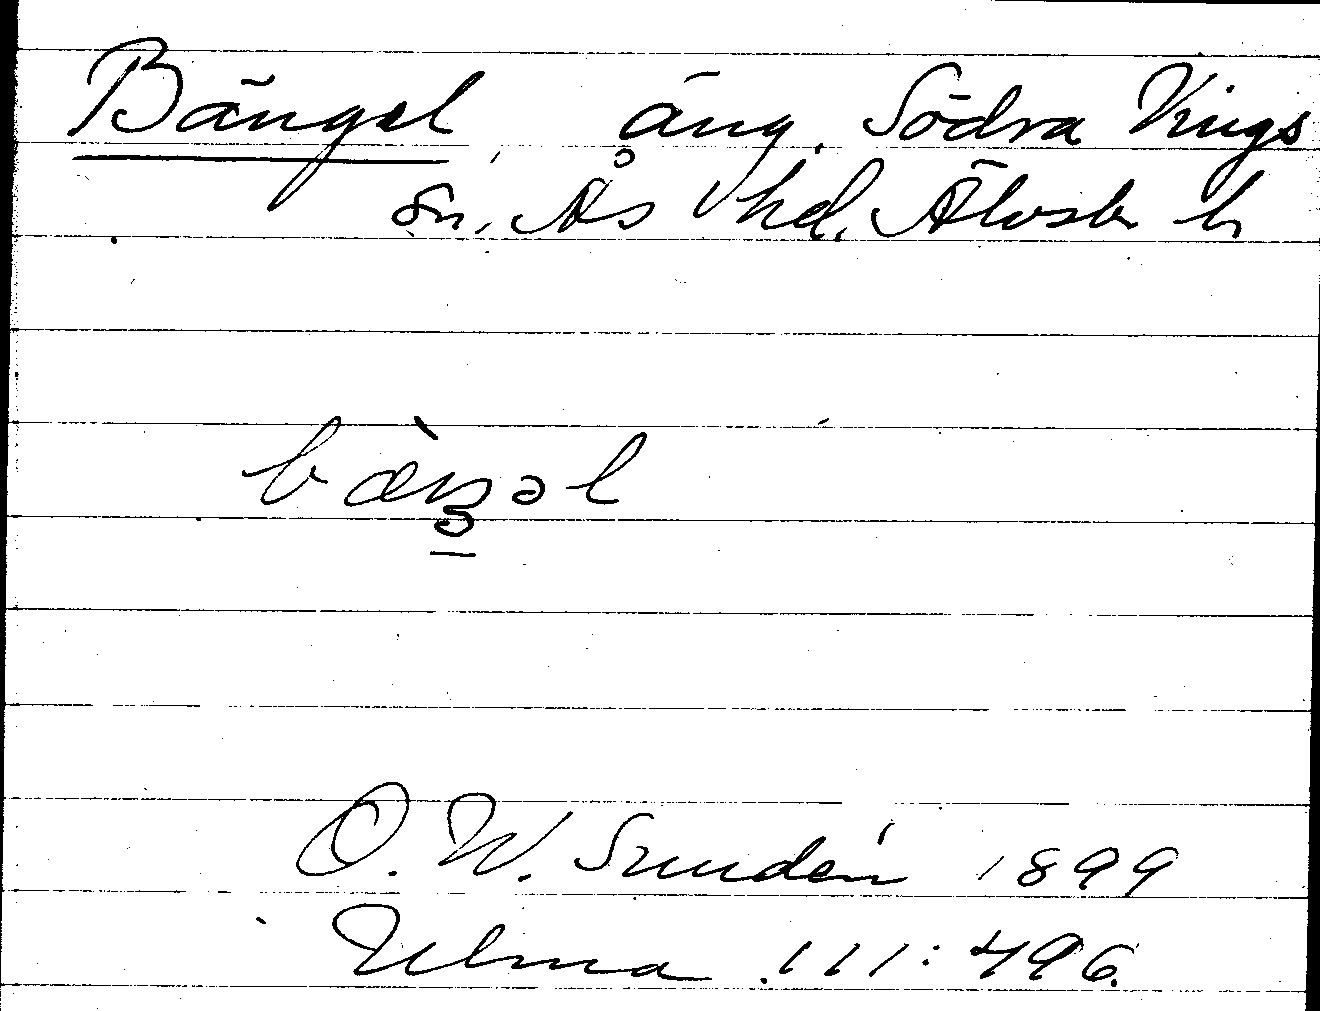 Bängel, äng, Södra Vings
sn, Ås hd, Älvsb l
bæ̀ŋəl
O. W. Sundén 1899
Ulma 111:496.